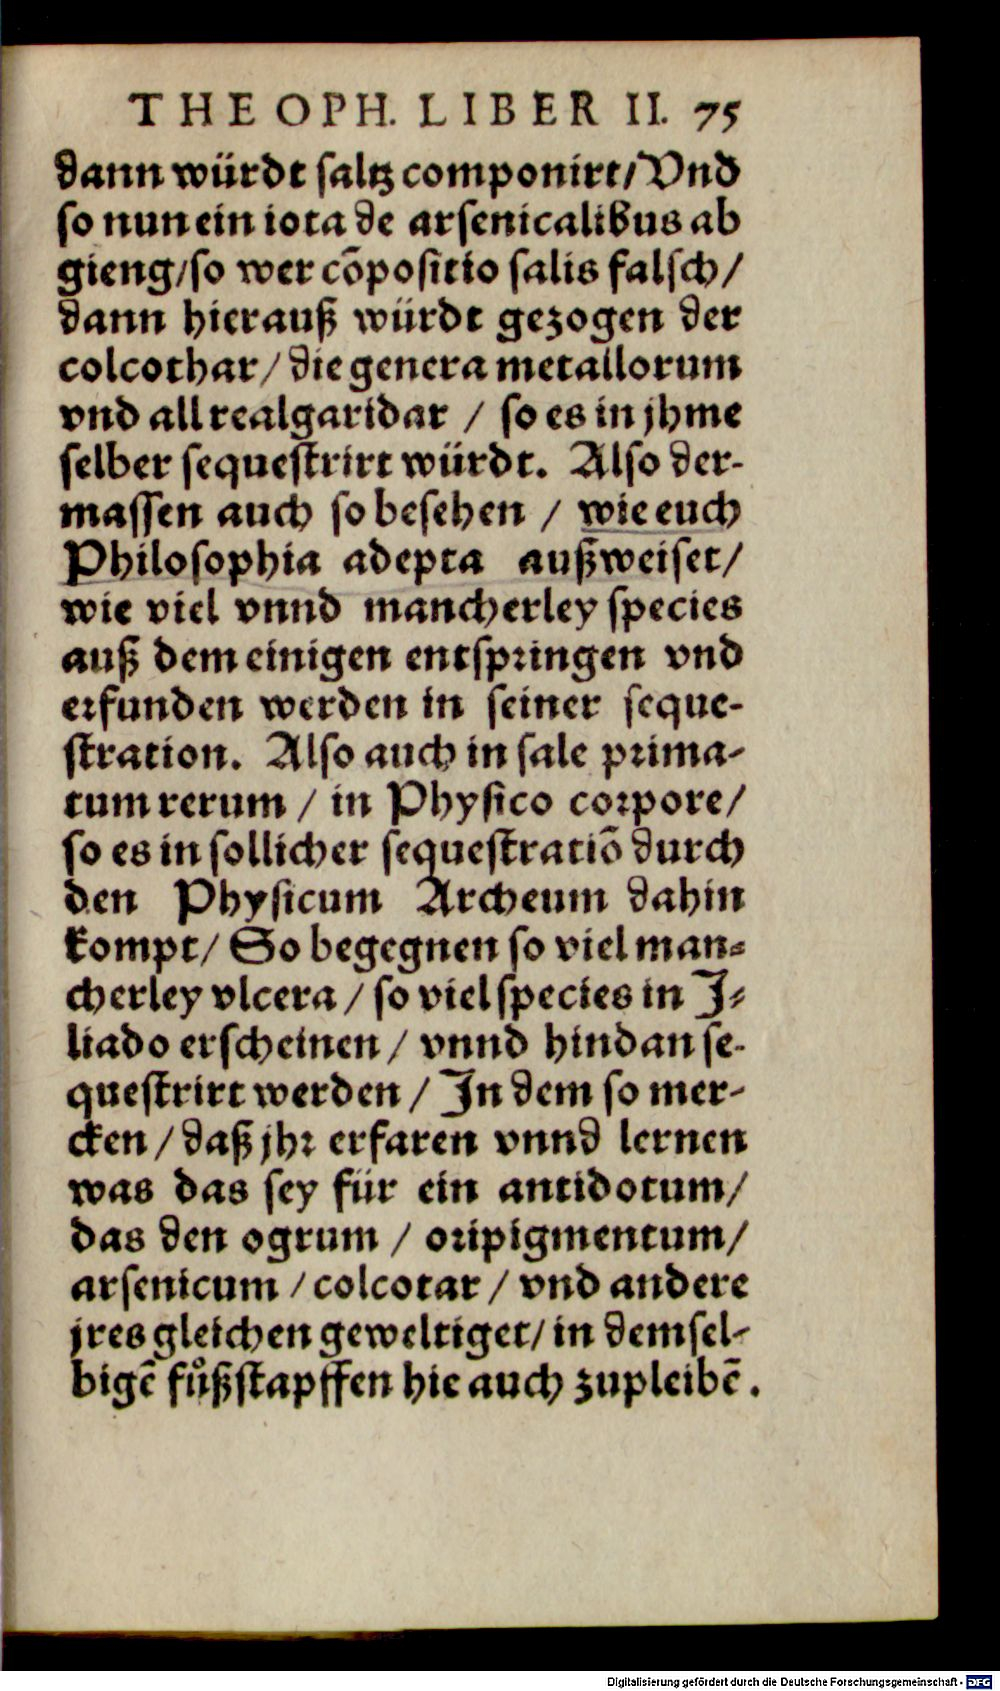 THEOPH. LIBER II. 75
dann würdt saltz componirt/ Vnd
so nun ein iota de arsenicalibus ab
gieng/ so wer cōpositio salis falsch/
dann hierauß würdt gezogen der
colcothar/ die genera metallorum
vnd all realgaridar / so es in jhme
selber sequestrirt würdt. Also der-
massen auch so besehen / wie euch
Philosophia adepta außweiset/
wie viel vnnd mancherley species
auß dem einigen entspringen vnd
erfunden werden in seiner seque-
stration. Also auch in sale prima-
tum rerum / in Physico corpore/
so es in sollicher sequestratiō durch
den Physicum Archeum dahin
kompt/ So begegnen so viel man-
cherley vlcera / so viel species in J-
liado erscheinen / vnnd hindan se-
questrirt werden / Jn dem so mer-
cken / daß jhr erfaren vnnd lernen
was das sey für ein antidotum/
das den ogrum / oripigmentum/
arsenicum / colcotar / vnd andere
jres gleichen geweltiget/ in demsel-
bigē fůßstapffen hie auch zupleibē.
Digitalisierung gefördert durch die Deutsche Forschungsgemeinschaft - DFG